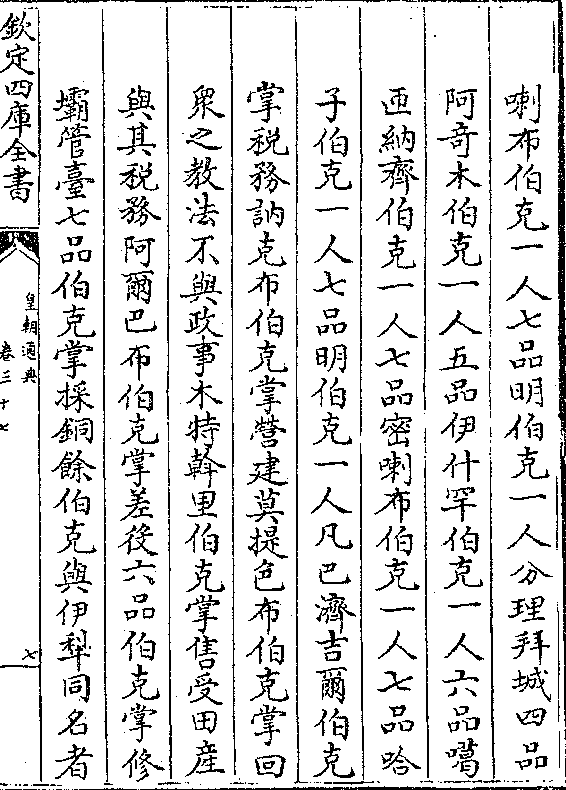 喇布伯克一人七品明伯克一人分理拜城四品
阿奇木伯克一人五品伊什罕伯克一人六品噶
匝納齊伯克一人七品密喇布伯克一人七品哈
子伯克一人七品明伯克一人凡巴濟吉爾伯克
掌稅務訥克布伯克掌營建莫提色布伯克掌回
衆之教法不與政事木特斡里伯克掌售受田産
與其稅務阿爾巴布伯克掌差役六品伯克掌修
壩管臺七品伯克掌採銅餘伯克與伊犂同名者
欽定四庫全書
皇朝通典
卷三十七
七